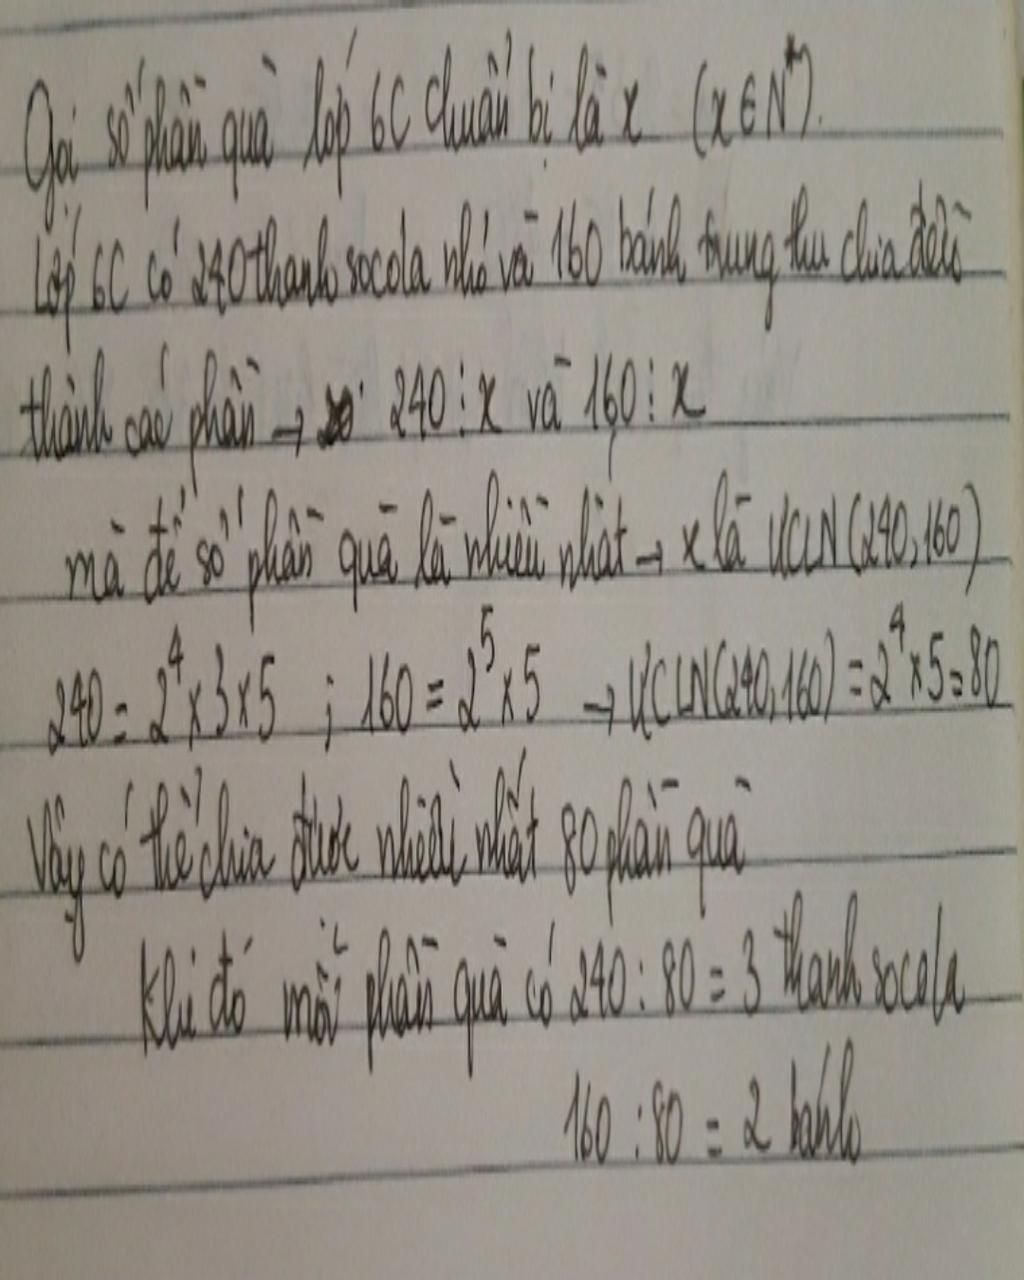 Gọi số phần quà lớp 6C chuẩn bị là x (x ∈ N*).
Lớp 6C có 240 thanh socola nhỏ và 160 bánh trung thu chia đều
thành các phần → 240 ⋮ x và 160 ⋮ x
mà để số phần quà là nhiều nhất → x là ƯCLN(240,160)
240 = 2⁴ × 3 × 5 ; 160 = 2⁵ × 5 → ƯCLN(240,160) = 2⁴ × 5 = 80
Vậy có thể chia được nhiều nhất 80 phần quà
Khi đó mỗi phần quà có 240 : 80 = 3 thanh socola
160 : 80 = 2 bánh